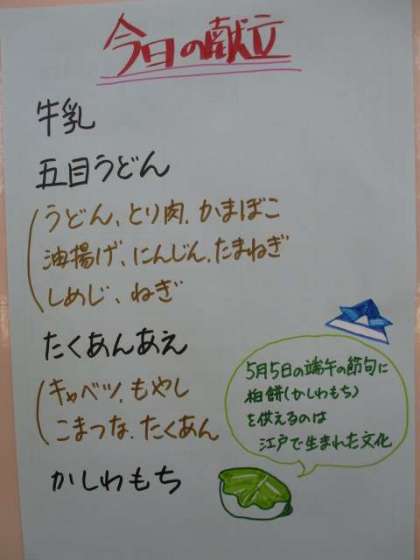 今日の献立
牛乳
五目うどん
(うどん、とり肉、かまぼこ
油揚げ、にんじん、たまねぎ
しめじ、ねぎ
たくあんあえ
(キャベツ、もやし
こまつな、たくあん
かしわもち
5月5日の端午の節句に
柏餅(かしわもち)
を供えるのは
江戸で生まれた文化